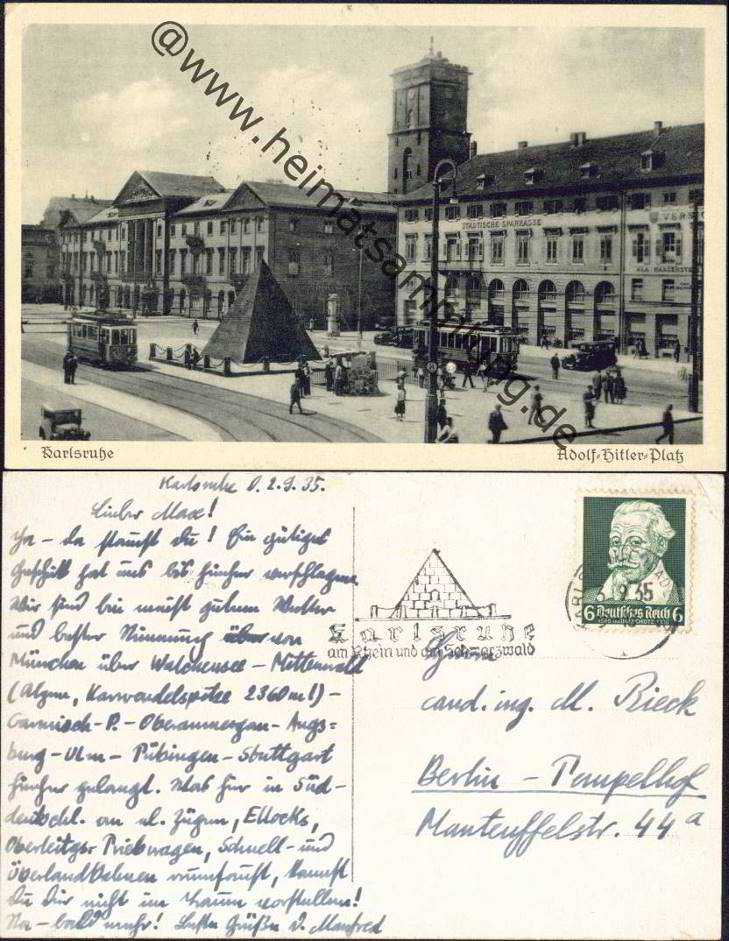 @www.heimatsammlung.de
STÄDTISCHE SPARKASSE
Karlsruhe
Adolf-Hitler-Platz
Karlsruhe d. 2.9.35.
Lieber Max!
Ja - da staunst du! Ein gütiges
Geschick hat uns bis hierher verschlagen.
Wir sind bei meist gutem Wetter
und bester Stimmung über von
München über Walchensee - Mittenwald
(Alpen, Karwendelspitze 2360m!) -
Garmisch-P. - Oberammergau - Augs=
burg - Ulm - Tübingen - Stuttgart
hierher gelangt. Was hier in Süd-
deutschl. an el. Zügen, Ellocks,
Oberleitgs Triebwagen, Schnell- und
Überlandbahnen rumfaust, kannst
Du Dir nicht im Traum vorstellen!
Na - bald mehr! Beste Grüße D. Manfred
Karlsruhe
am Rhein und am Schwarzwald
9.35
6 Deutsches Reich 6
Herrn
cand. ing. M. Rieck
Berlin - Tempelhof
Manteuffelstr. 44a